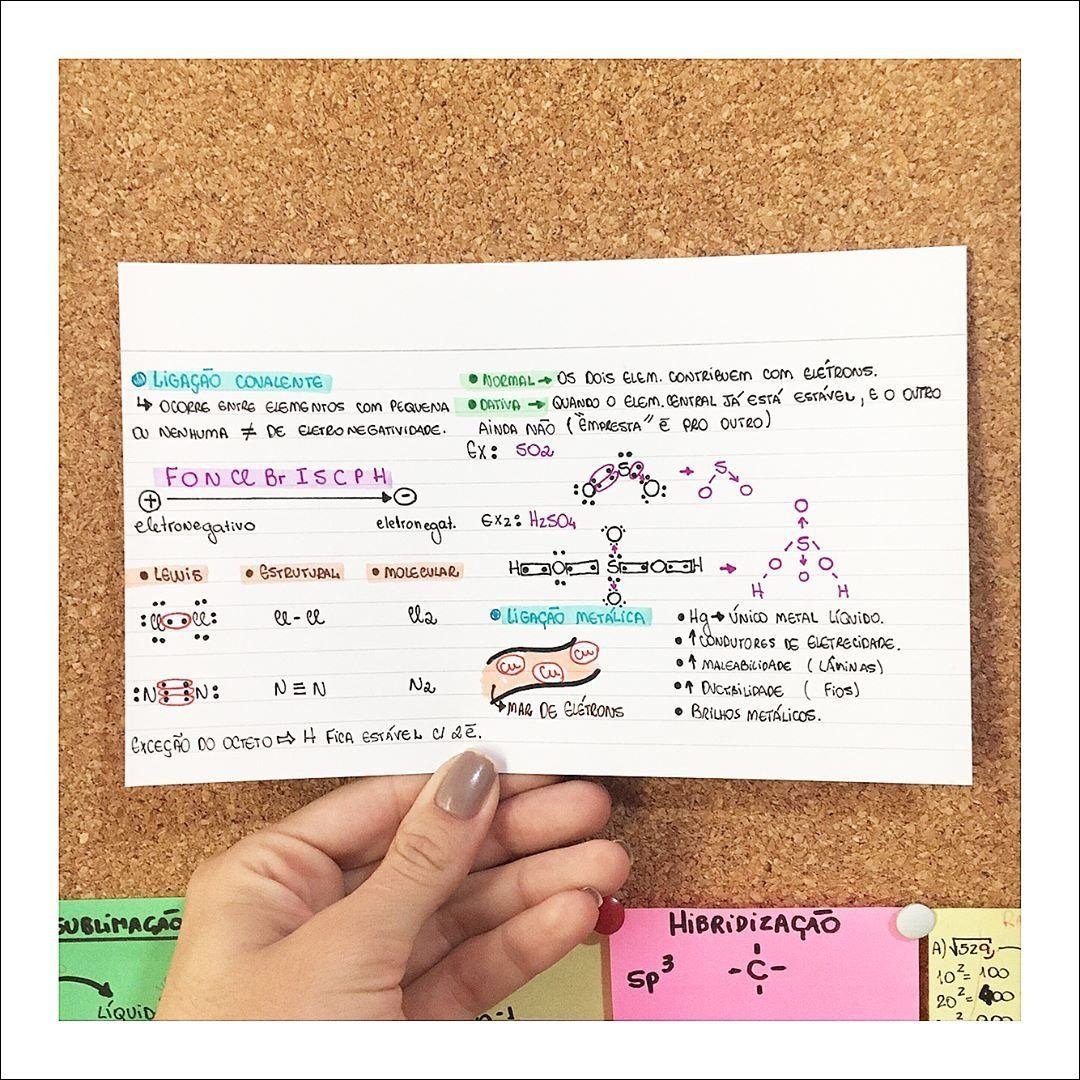 LIGAÇÃO COVALENTE
↳ OCORRE ENTRE ELEMENTOS COM PEQUENA
OU NENHUMA ≠ DE ELETRONEGATIVIDADE.
FONClBrISCPH
+ → -
eletronegativo eletronegat.
• LEWIS • ESTRUTURAL • MOLECULAR
:Cl••Cl: Cl-Cl Cl2
:N N: N≡N N2
EXCEÇÃO DO OCTETO ⇨ H FICA ESTÁVEL C/ 2ē.
• NORMAL → OS DOIS ELEM. CONTRIBUEM COM ELÉTRONS.
• DATIVA → QUANDO O ELEM. CENTRAL JÁ ESTÁ ESTÁVEL, E O OUTRO
AINDA NÃO ("EMPRESTA" ē PRO OUTRO)
EX: SO2
S → S
O O O O
EX2: H2SO4
O O
H O S O H → S
O O O O
H H
LIGAÇÃO METÁLICA
Cu Cu Cu
↳ MAR DE ELÉTRONS
• Hg → ÚNICO METAL LÍQUIDO.
• ↑ CONDUTORES DE ELETRECIDADE.
• ↑ MALEABILIDADE (LÂMINAS)
• ↑ DUCTBILIDADE (FIOS)
• BRILHOS METÁLICOS.
SUBLIMAÇÃO
LÍQUID
n-1
HIBRIDIZAÇÃO
sp³ -C-
A) √529
10²= 100
20²= 400